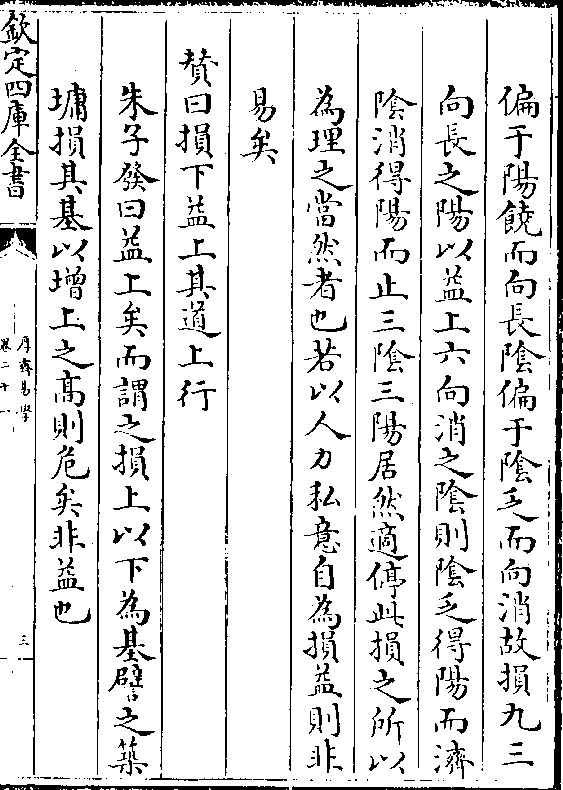 偏于陽饒而向長陰偏于陰乏而向消故損九三
向長之陽以益上六向消之陰則陰乏得陽而濟
陰消得陽而止三陰三陽居然適停此損之所以
為理之當然者也若以人力私意自為損益則非
易矣
贊曰損下益上其道上行
朱子發曰益上矣而謂之損上以下為基譬之築
墉損其基以增上之髙則危矣非益也
欽定四庫全書
厚齋易學
卷二十一
三